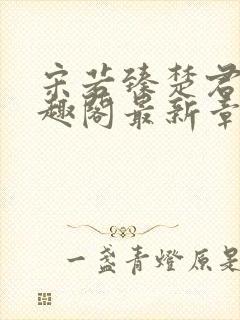 宋若臻楚君
趣阁最新章
一盏青燈原是